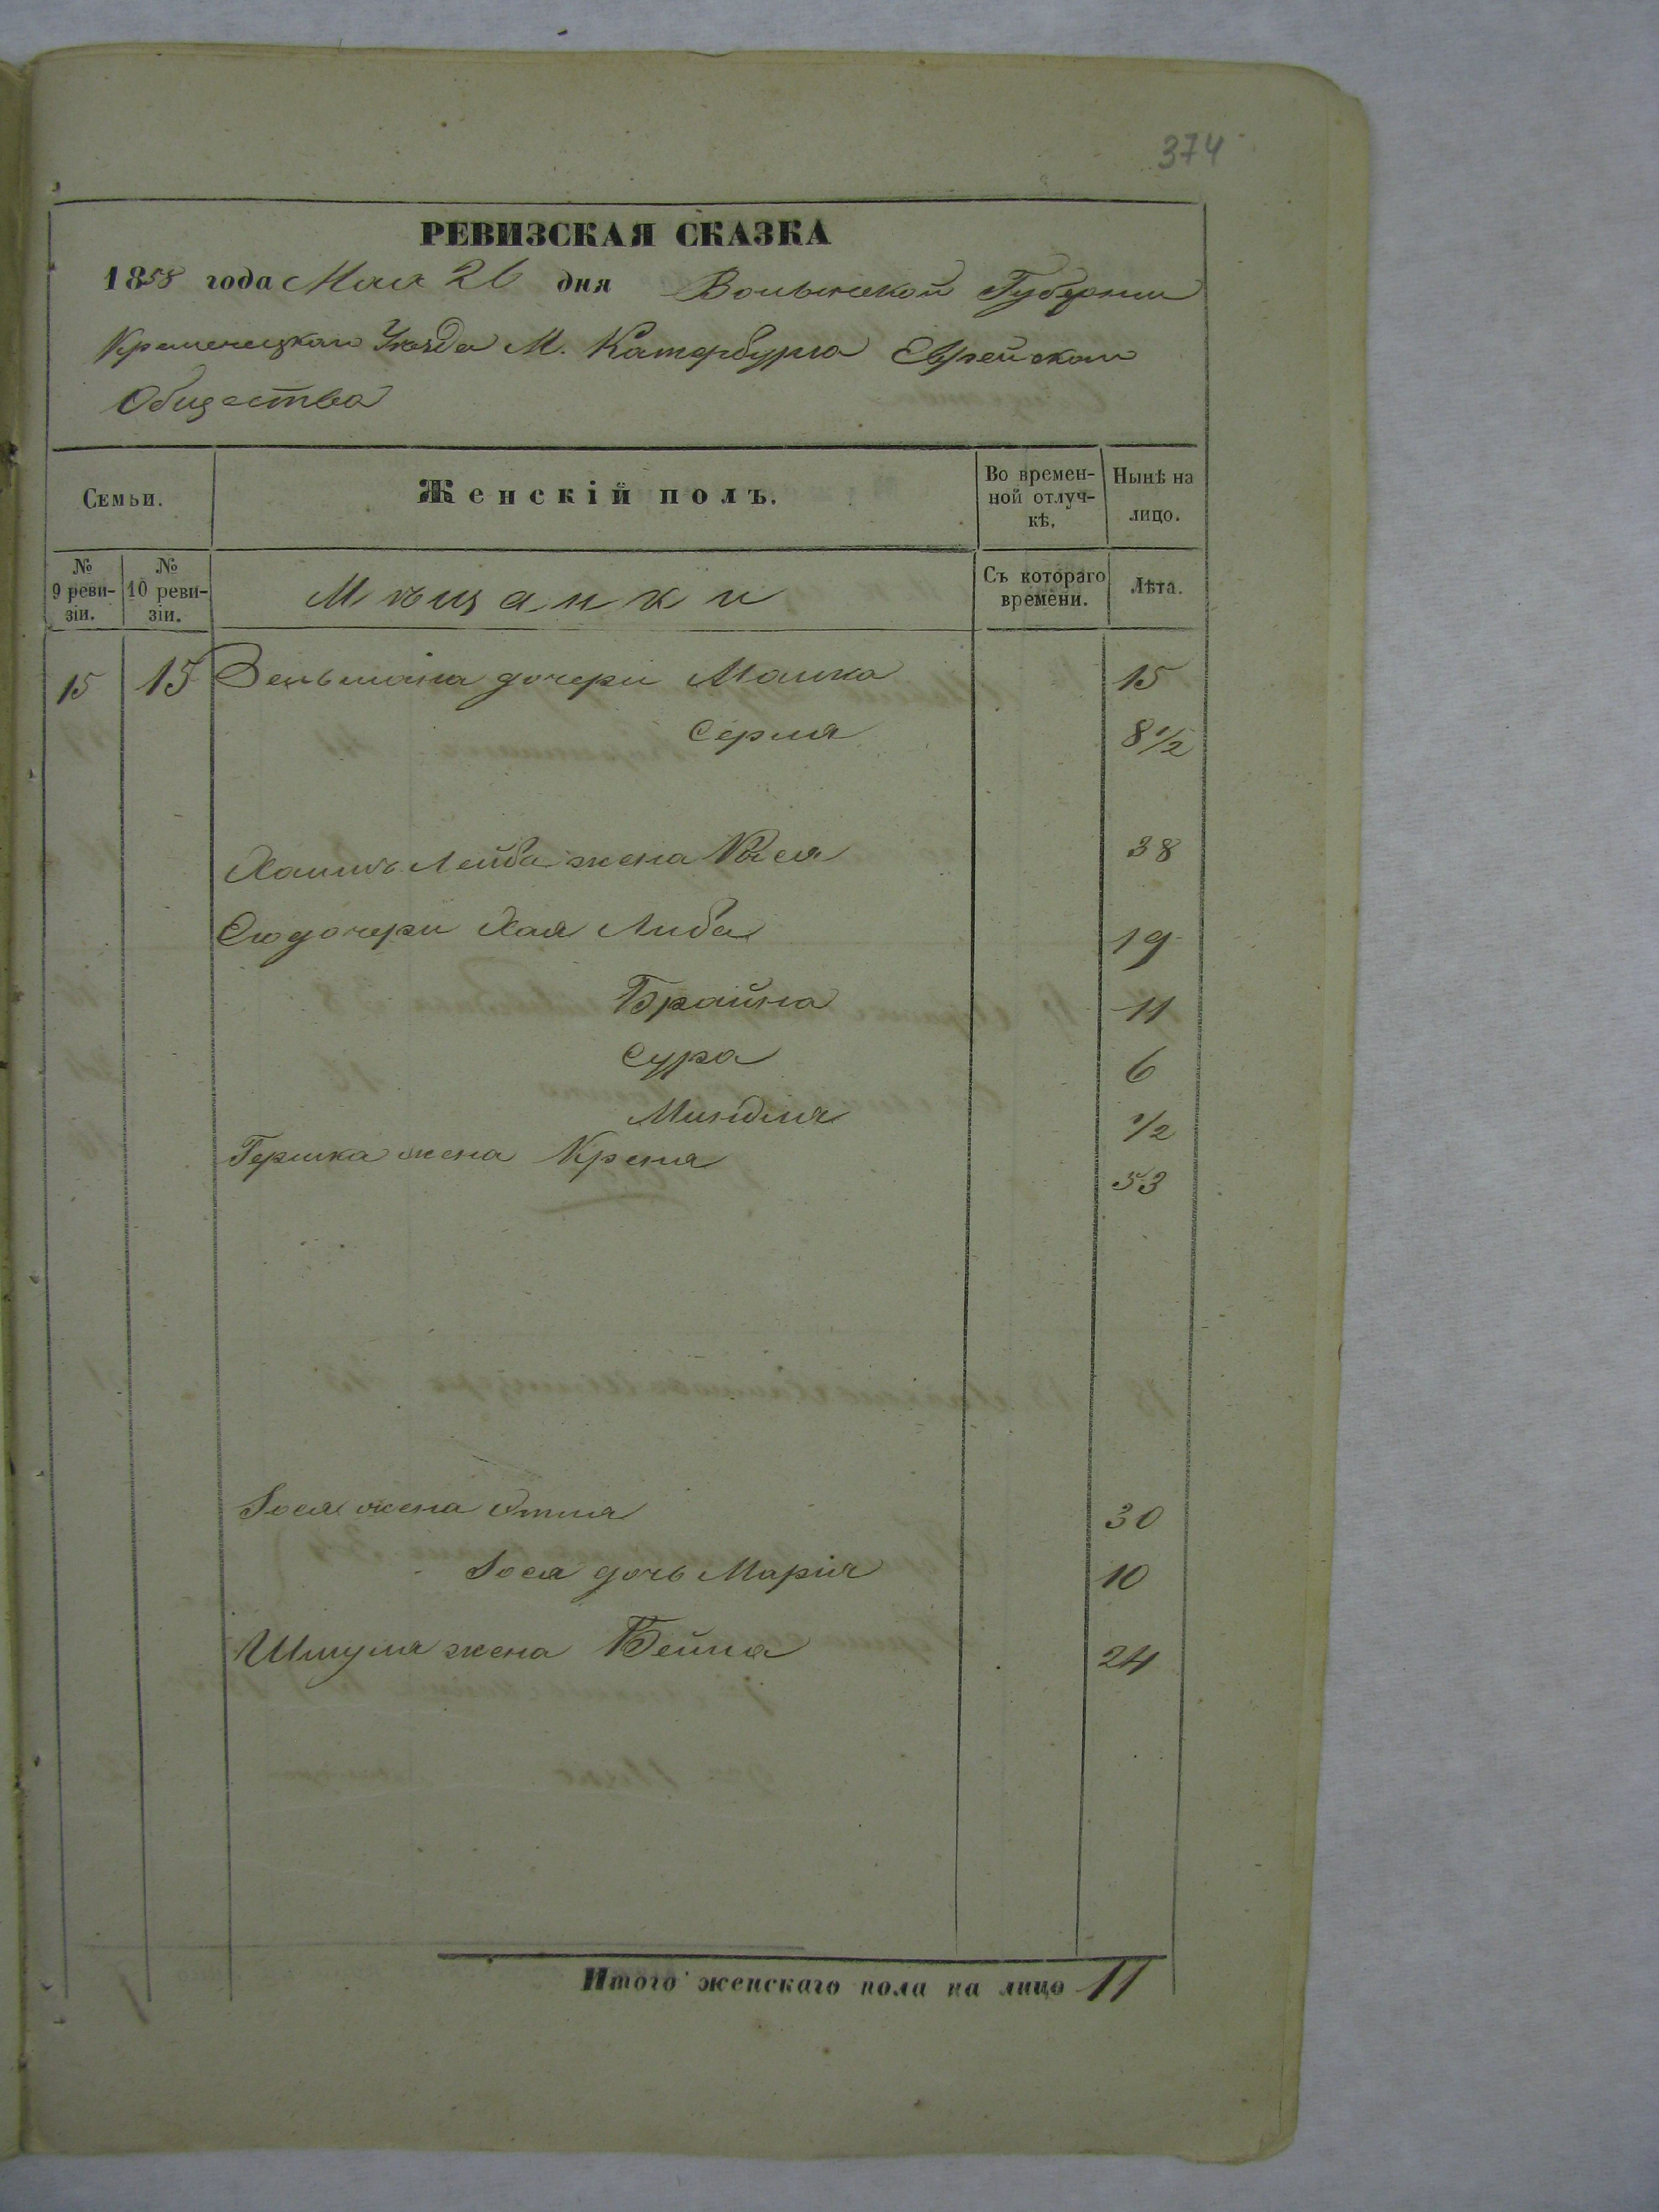 374
РЕВИЗСКАЯ СКАЗКА
1858 года Мая 26 дня Волынской Губернии
Кременецкаго Уѣзда М. Катербурга Еврейскаго
Общества
Семьи. Женскій полъ. Во времен-ной отлуч-кѣ. Нынѣ на лицо.
№ 9 реви-зіи. № 10 реви-зіи. Мѣщанки Съ котораго времени. Лѣта.
15 15 Зельмана дочери Машка 15
Серля 8 1/2
Хаимъ Лейба жена 38
Его дочери Хая Либа 19
Брайна 11
Сура 6
Миндля 1/2
Гершка жена Креня 53
Іося жена Этля 30
Іося дочь Марія 10
Шмуля жена Бейла 24
Итого женскаго пола на лицо 11